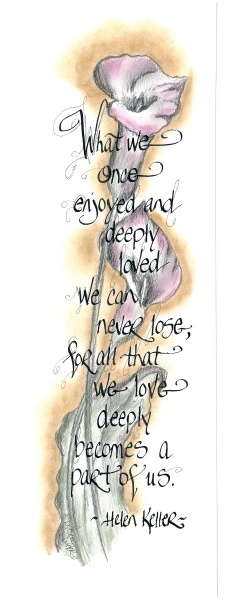 What we
once
enjoyed and
deeply
loved
we can
never lose,
for all that
we love
deeply
becomes a
part of us.
~Helen Keller~